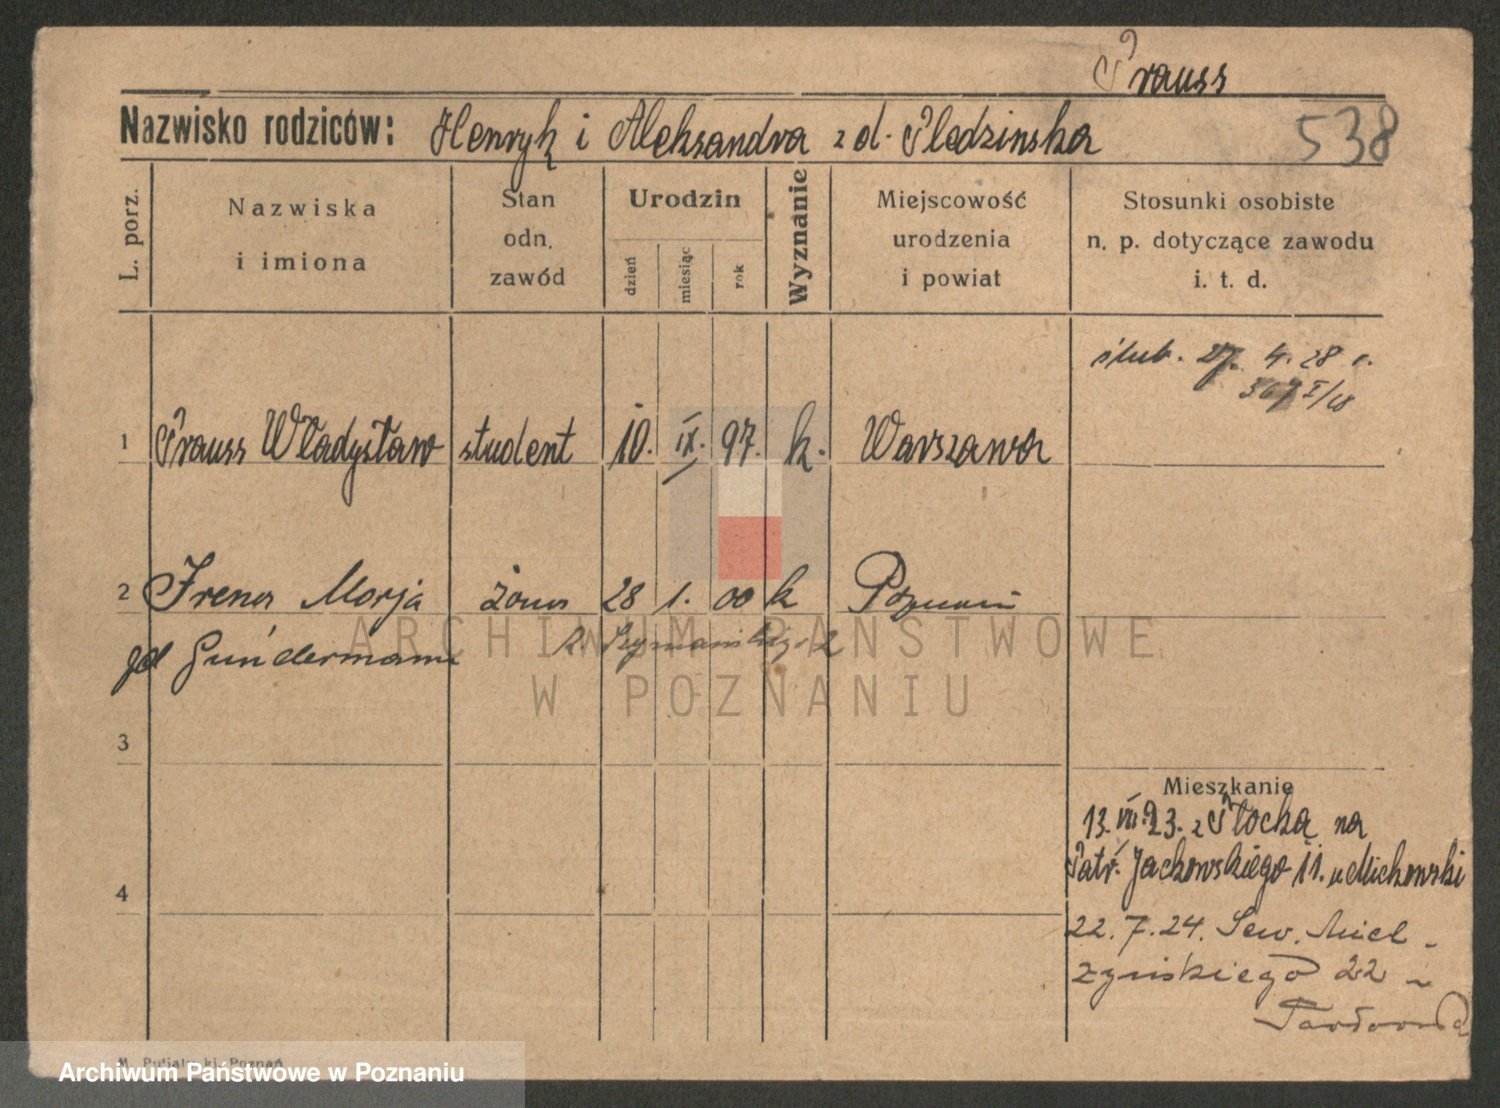 Prauss
Nazwisko rodziców: Henryk i Aleksandra z d. Pledzinska
538
L. porz.
Nazwiska
i imiona
Stan
odn.
zawód
Urodzin
dzień
miesiąc
rok
Wyznanie
Miejscowość
urodzenia
i powiat
Stosunki osobiste
n. p. dotyczące zawodu
i. t. d.
ślub. 27. 4. 28 r.
1 Prauss Władysław student 10. IX. 97. k. Warszawa
2 Irena Marja żona 28 1. 00 k Poznań
Gundermann
3
4
Mieszkanie
13. VII. 23. z Płocka na
Patr. Jackowskiego 11. u Michowski
22. 7. 24. Sew. Miel-
żyńskiego 22
ARCHIWUM PAŃSTWOWE
W POZNANIU
Archiwum Państwowe w Poznaniu